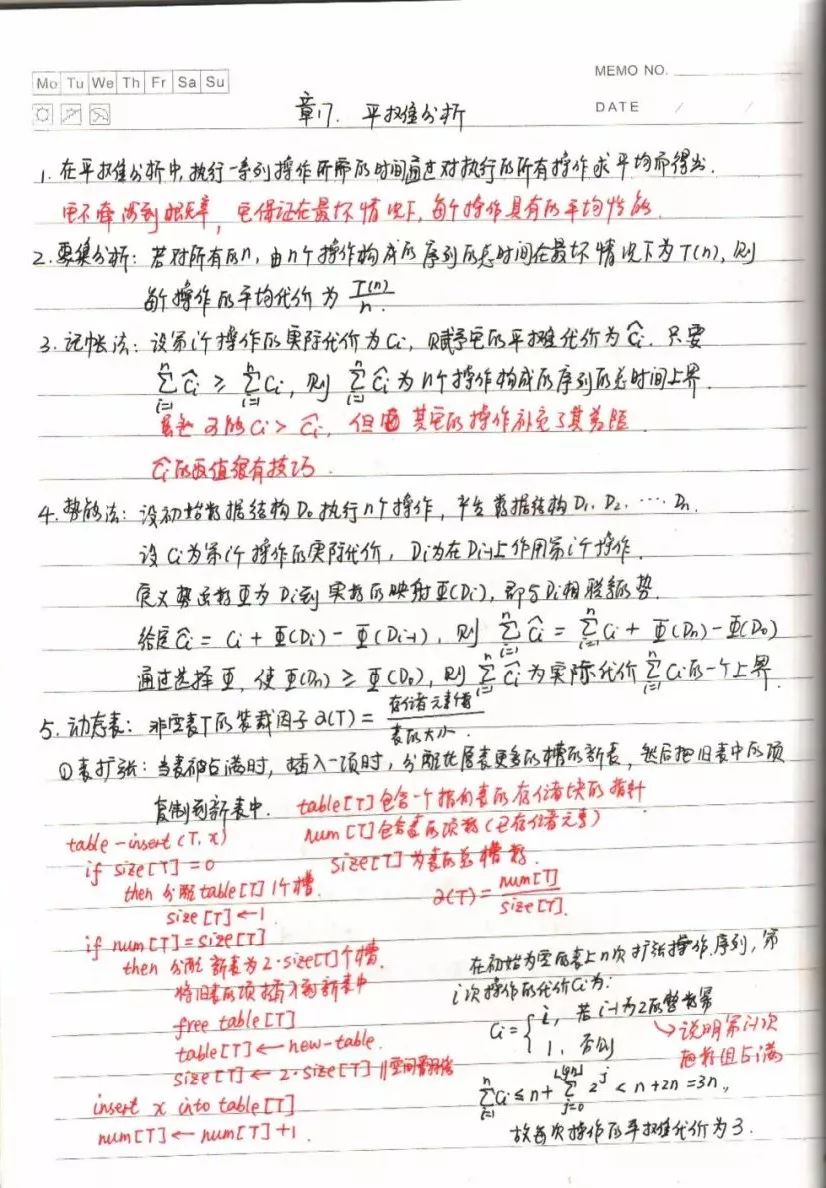 Mo Tu We Th Fr Sa Su
MEMO NO.
DATE / /
章17. 平摊分析
1. 在平摊分析中,执行一系列操作所需的时间通过对执行的所有操作求平均而得出.
它不牵涉到概率,它保证在最坏情况下,每个操作具有的平均性能.
2. 聚集分析: 若对所有的n, 由n个操作构成的序列的总时间在最坏情况下为T(n), 则
每个操作的平均代价为 T(n)/n.
3. 记帐法: 设第i个操作的实际代价为Ci, 赋予它的平摊代价为Ĉi. 只要
∑_{i=1}^{n} Ĉi ≥ ∑_{i=1}^{n} Ci, 则 ∑_{i=1}^{n} Ĉi 为n个操作构成的序列的总时间上界.
可能Ci > Ĉi, 但 其它的操作补充了其差额.
Ĉi的取值很有技巧.
4. 势能法: 设初始数据结构D0执行n个操作, 产生数据结构D1. D2. …. Dn.
设Ci为第i个操作的实际代价, Di为在Di-1上作用第i个操作.
定义势函数Φ为Di到实数的映射Φ(Di), 即与Di相联系的势.
给定Ĉi = Ci + Φ(Di) − Φ(Di-1), 则 ∑_{i=1}^{n} Ĉi = ∑_{i=1}^{n} Ci + Φ(Dn) − Φ(D0)
通过选择Φ, 使Φ(Dn) ≥ Φ(D0), 则 ∑_{i=1}^{n} Ĉi 为实际代价 ∑_{i=1}^{n} Ci的一个上界.
5. 动态表: 非空表T的装载因子α(T) = 存储元素/表的大小.
①表扩张: 当表被占满时, 插入一项时, 分配比原表更多的槽的新表, 然后把旧表中的项
复制到新表中.
table[T]包含一个指向表的存储块的指针
num[T]包含表的项数(已存储元素)
size[T]为表的总槽数.
α(T) = num[T]/size[T].
table-insert(T, x)
if size[T]=0
then 分配table[T] 1个槽.
size[T]←1.
if num[T]=size[T]
then 分配 新表为2·size[T]个槽.
将旧表的项插入到新表中
free table[T]
table[T]←new-table.
size[T]← 2·size[T] //空间翻倍
insert x into table[T]
num[T]←num[T]+1.
在初始为空的表上n次扩张操作序列, 第
i次操作的代价Ci为:
Ci = { i, 若i-1为2的整数幂
1, 否则
→说明第i-1次
把数组占满
∑_{i=1}^{n} Ci ≤ n + ∑_{j=0}^{⌊lgn⌋} 2^j < n + 2n = 3n.
故每次操作的平摊代价为3.